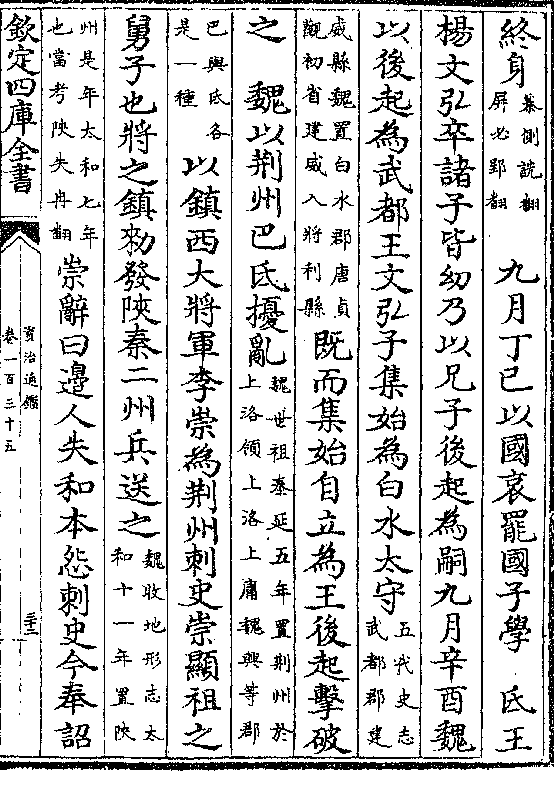 終身蓁側詵翻
屏必郢翻
九月丁巳以國哀罷國子學　氐王
楊文弘卒諸子皆幼乃以兄子後起為嗣九月辛酉魏
以後起為武都王文弘子集始為白水太守五代史志
武都郡建
威縣魏置白水郡唐貞
觀初省建威入將利縣
既而集始自立為王後起擊破
之　魏以荆州巴氐擾亂魏世祖泰延五年置荆州於
上洛領上洛上庸魏興等郡
巴與氐各
是一種
以鎮西大將軍李崇為荆州刺史崇顯祖之
舅子也將之鎮敕發陜秦二州兵送之魏收地形志太
和十一年置陜
州是年太和七年
也當考陜失冉翻
崇辭曰邉人失和本怨刺史今奉詔
欽定四庫全書
資治通鑑
卷一百三十五